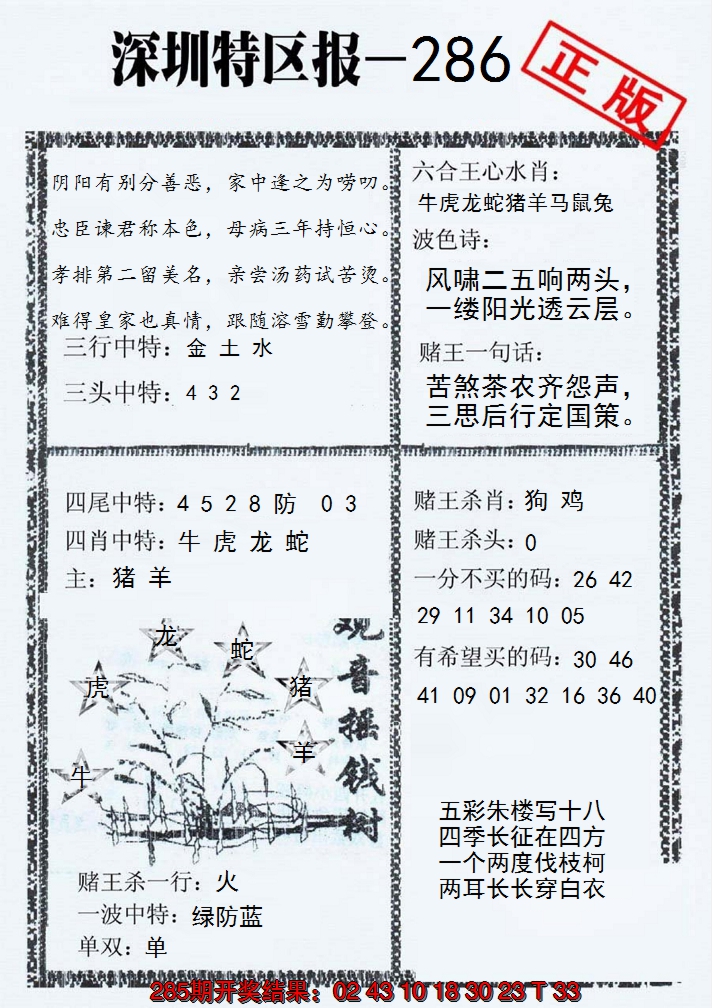 深圳特区报—286
正版
阴阳有别分善恶，家中逢之为唠叨。
忠臣谏君称本色，母病三年持恒心。
孝排第二留美名，亲尝汤药试苦烫。
难得皇家也真情，跟随溶雪勤攀登。
三行中特：金 土 水
三头中特：4 3 2
六合王心水肖：
牛虎龙蛇猪羊马鼠兔
波色诗：
风啸二五响两头，
一缕阳光透云层。
赌王一句话：
苦煞茶农齐怨声，
三思后行定国策。
四尾中特：4 5 2 8 防 0 3
四肖中特：牛 虎 龙 蛇
主：猪 羊
龙
蛇
虎
猪
羊
牛
观音摇钱树
赌王杀一行：火
一波中特：绿防蓝
单双：单
赌王杀肖：狗 鸡
赌王杀头：0
一分不买的码：26 42
29 11 34 10 05
有希望买的码：30 46
41 09 01 32 16 36 40
五彩朱楼写十八
四季长征在四方
一个两度伐枝柯
两耳长长穿白衣
285期开奖结果：02 43 10 18 30 23 T 33